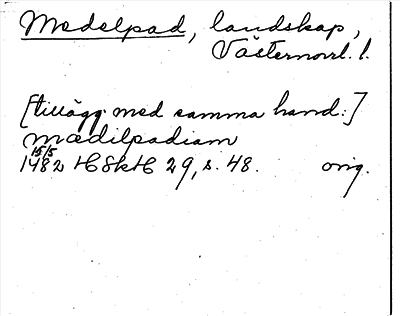 Medelpad, landskap,
Västernorrl. l.
[tillägg med samma hand:]
mædilpadiam
15/5
1482 HSkH 29, s. 48. orig.